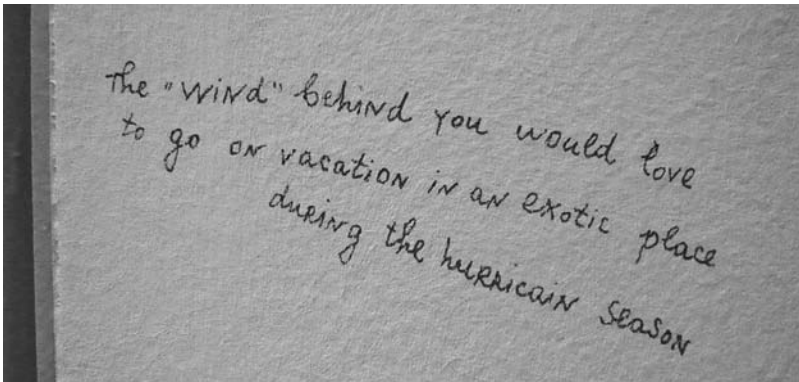 The "wind" behind you would love
to go on vacation in an exotic place
during the hurricain season